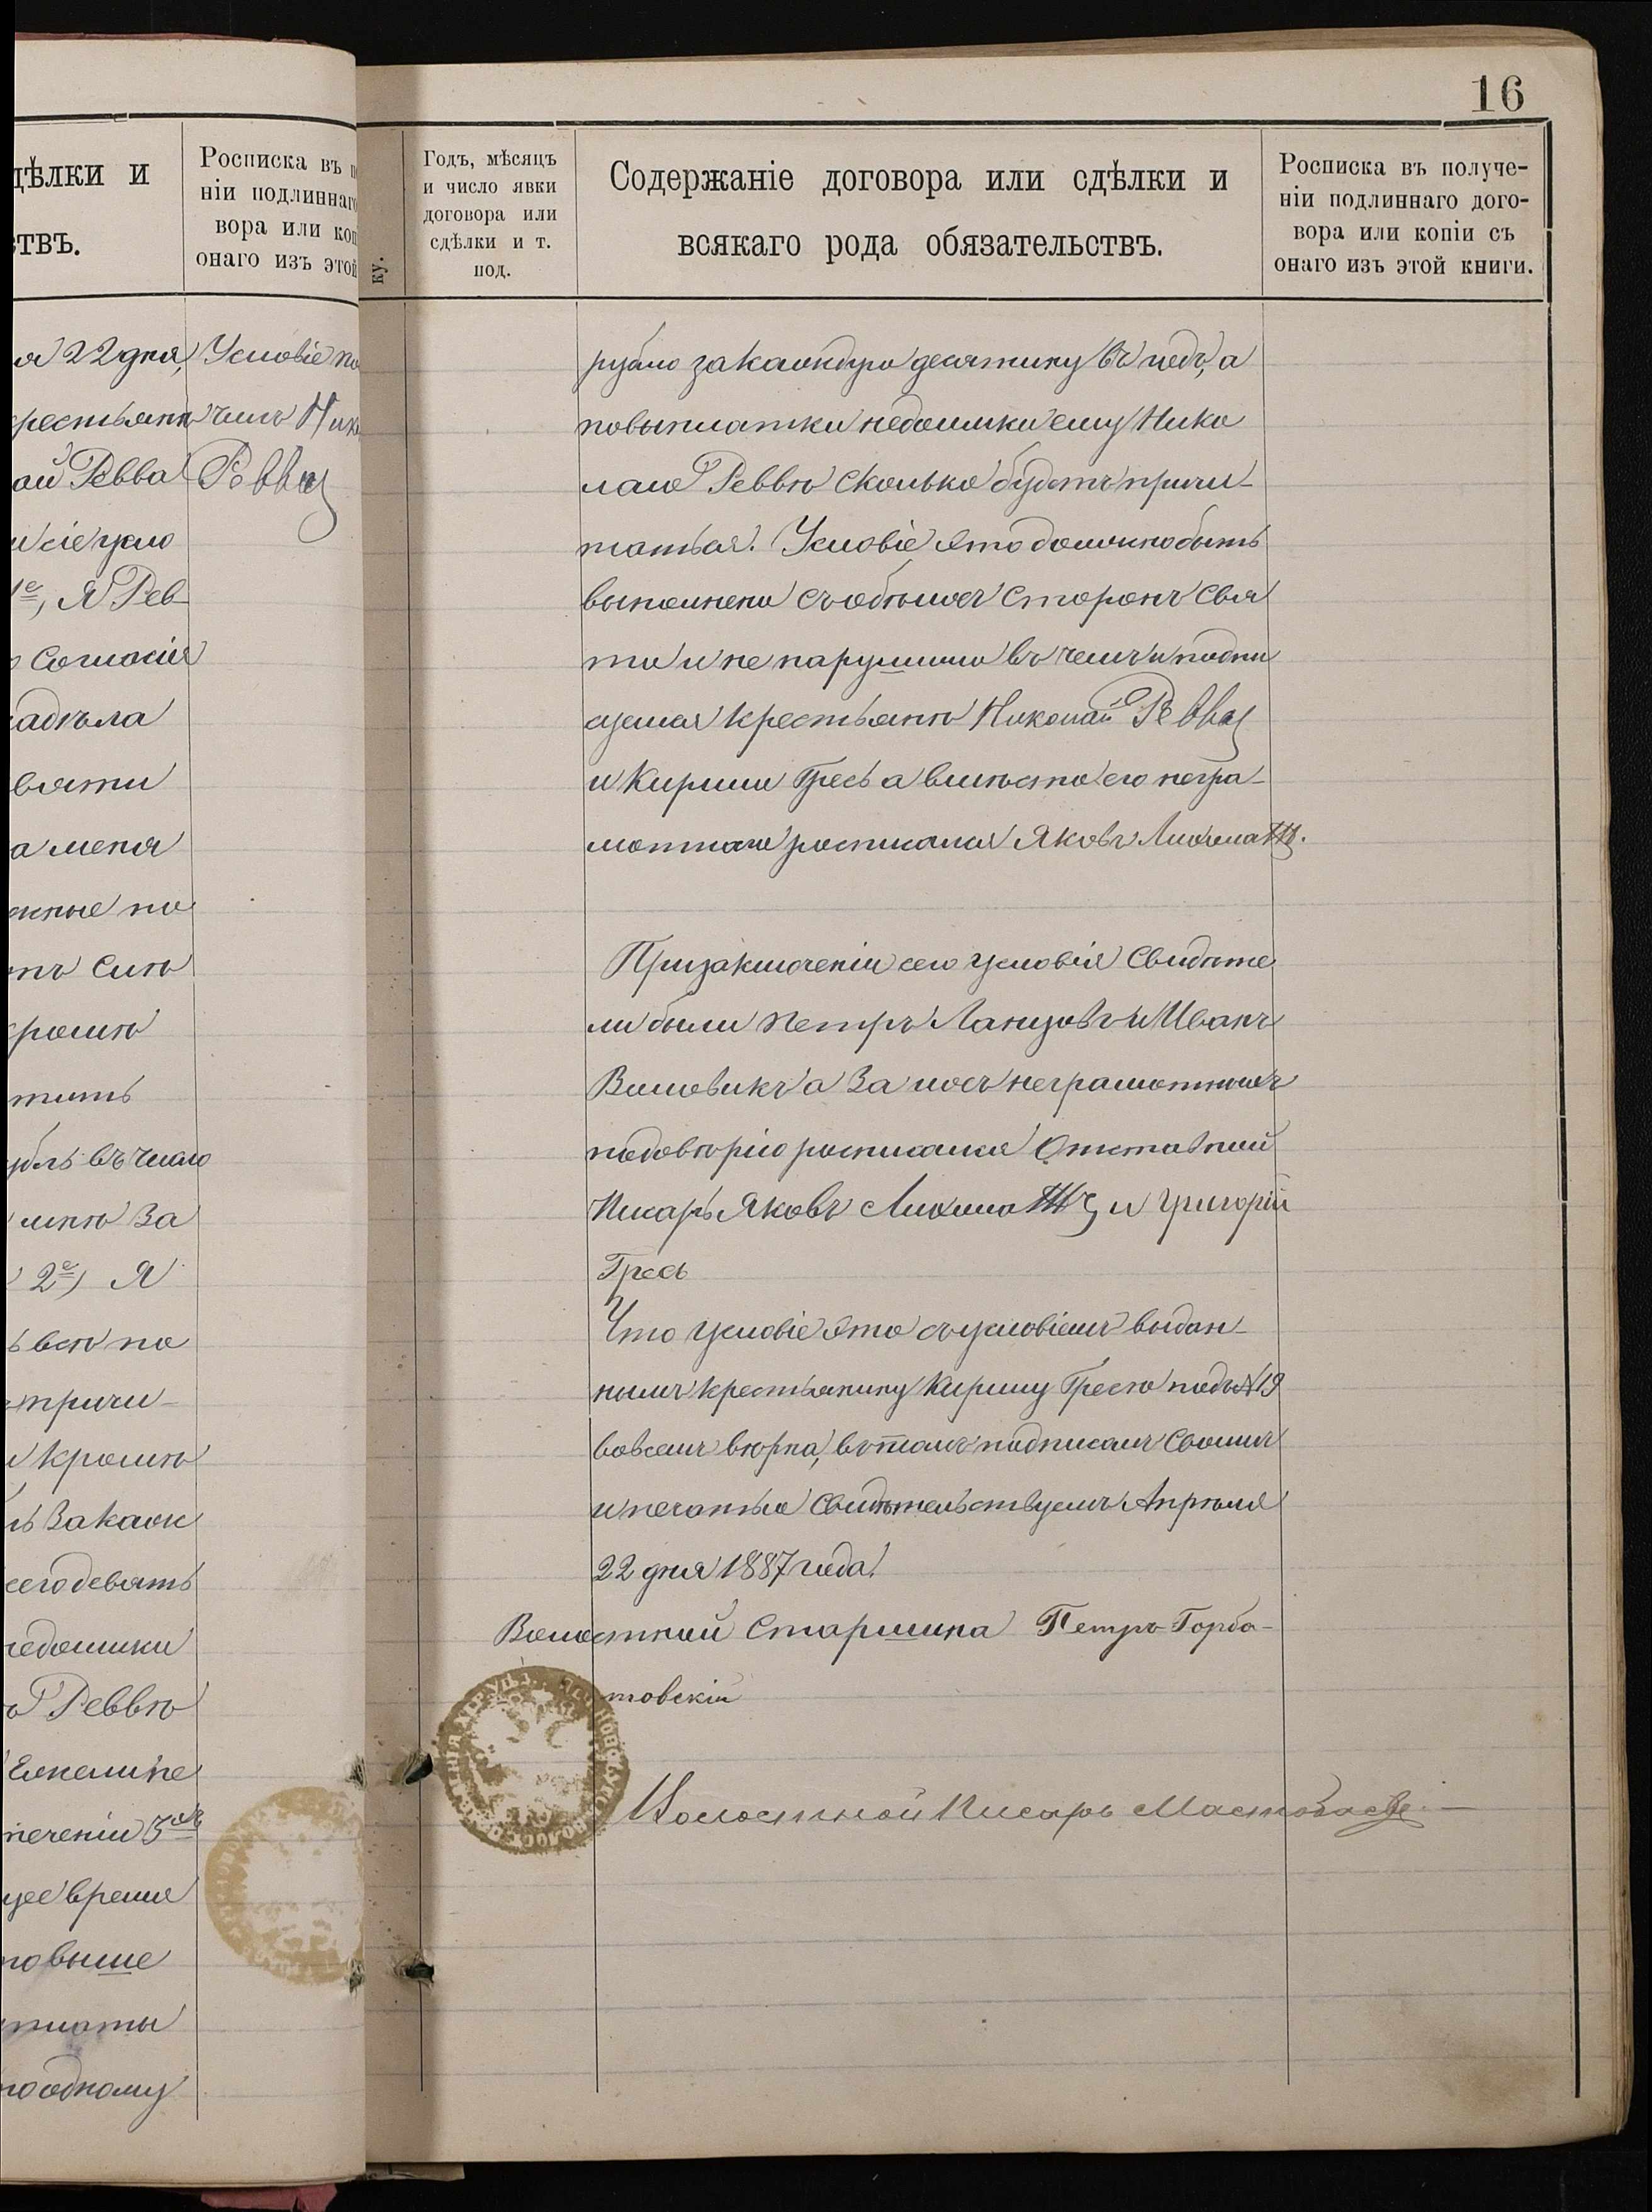 16
дѣлки и
ствъ.
Росписка въ
ніи подлиннаго
вора или коп
онаго изъ этой
ку.
Годъ, мѣсяцъ
и число явки
договора или
сдѣлки и т.
под.
Содержаніе договора или сдѣлки и
всякаго рода обязательствъ.
Росписка въ получе-
ніи подлиннаго дого-
вора или копіи съ
онаго изъ этой книги.
я 22 дня,
рестьяни
ай Ревва
и сіе усло
1е, Я Рев
согласія
надѣла
вяти
а меня
жные по
тъ сим
кромѣ
тить
убль въ число
мнѣ за
2е) Я
ь всѣ по
причи-
и кромѣ
ль закаж
сего девять
недоимки
ю Реввѣ
Ежели не
теченіи 3хъ
щее время
по выше
платы
по одному
Условіе по
чилъ Нико
Ревва
рублю за каждую десятину въ годъ, а
по выплатки недоимки ему Нико
лаю Реввѣ сколько будетъ причи-
таться. Условіе это должно быть
выполнено съ обѣихъ сторонъ свя
то и не нарушимо въ чемъ и подпи
суемся крестьяне Николай Ревва
и Кирило Гресь а вмѣсто его негра-
мотнаго росписался Яковъ
При заключеніи сего условія свидѣте
ли были Петръ Ланцовъ и Иванъ
Виловикъ а за ихъ неграмотныхъ
по довѣрію росписался Отставной
Писарь Яковъ и Григорій
Гресь
Что условіе это съ условіемъ выдан-
нымъ крестьянину Кирилу Гресю подъ № 19
во всемъ вѣрна, въ томъ подписомъ своимъ
и печатью свидѣтельствуемъ Апрѣля
22 дня 1887 года.
Волостной Старшина Петръ Горба-
товскій
Волостной Писарь